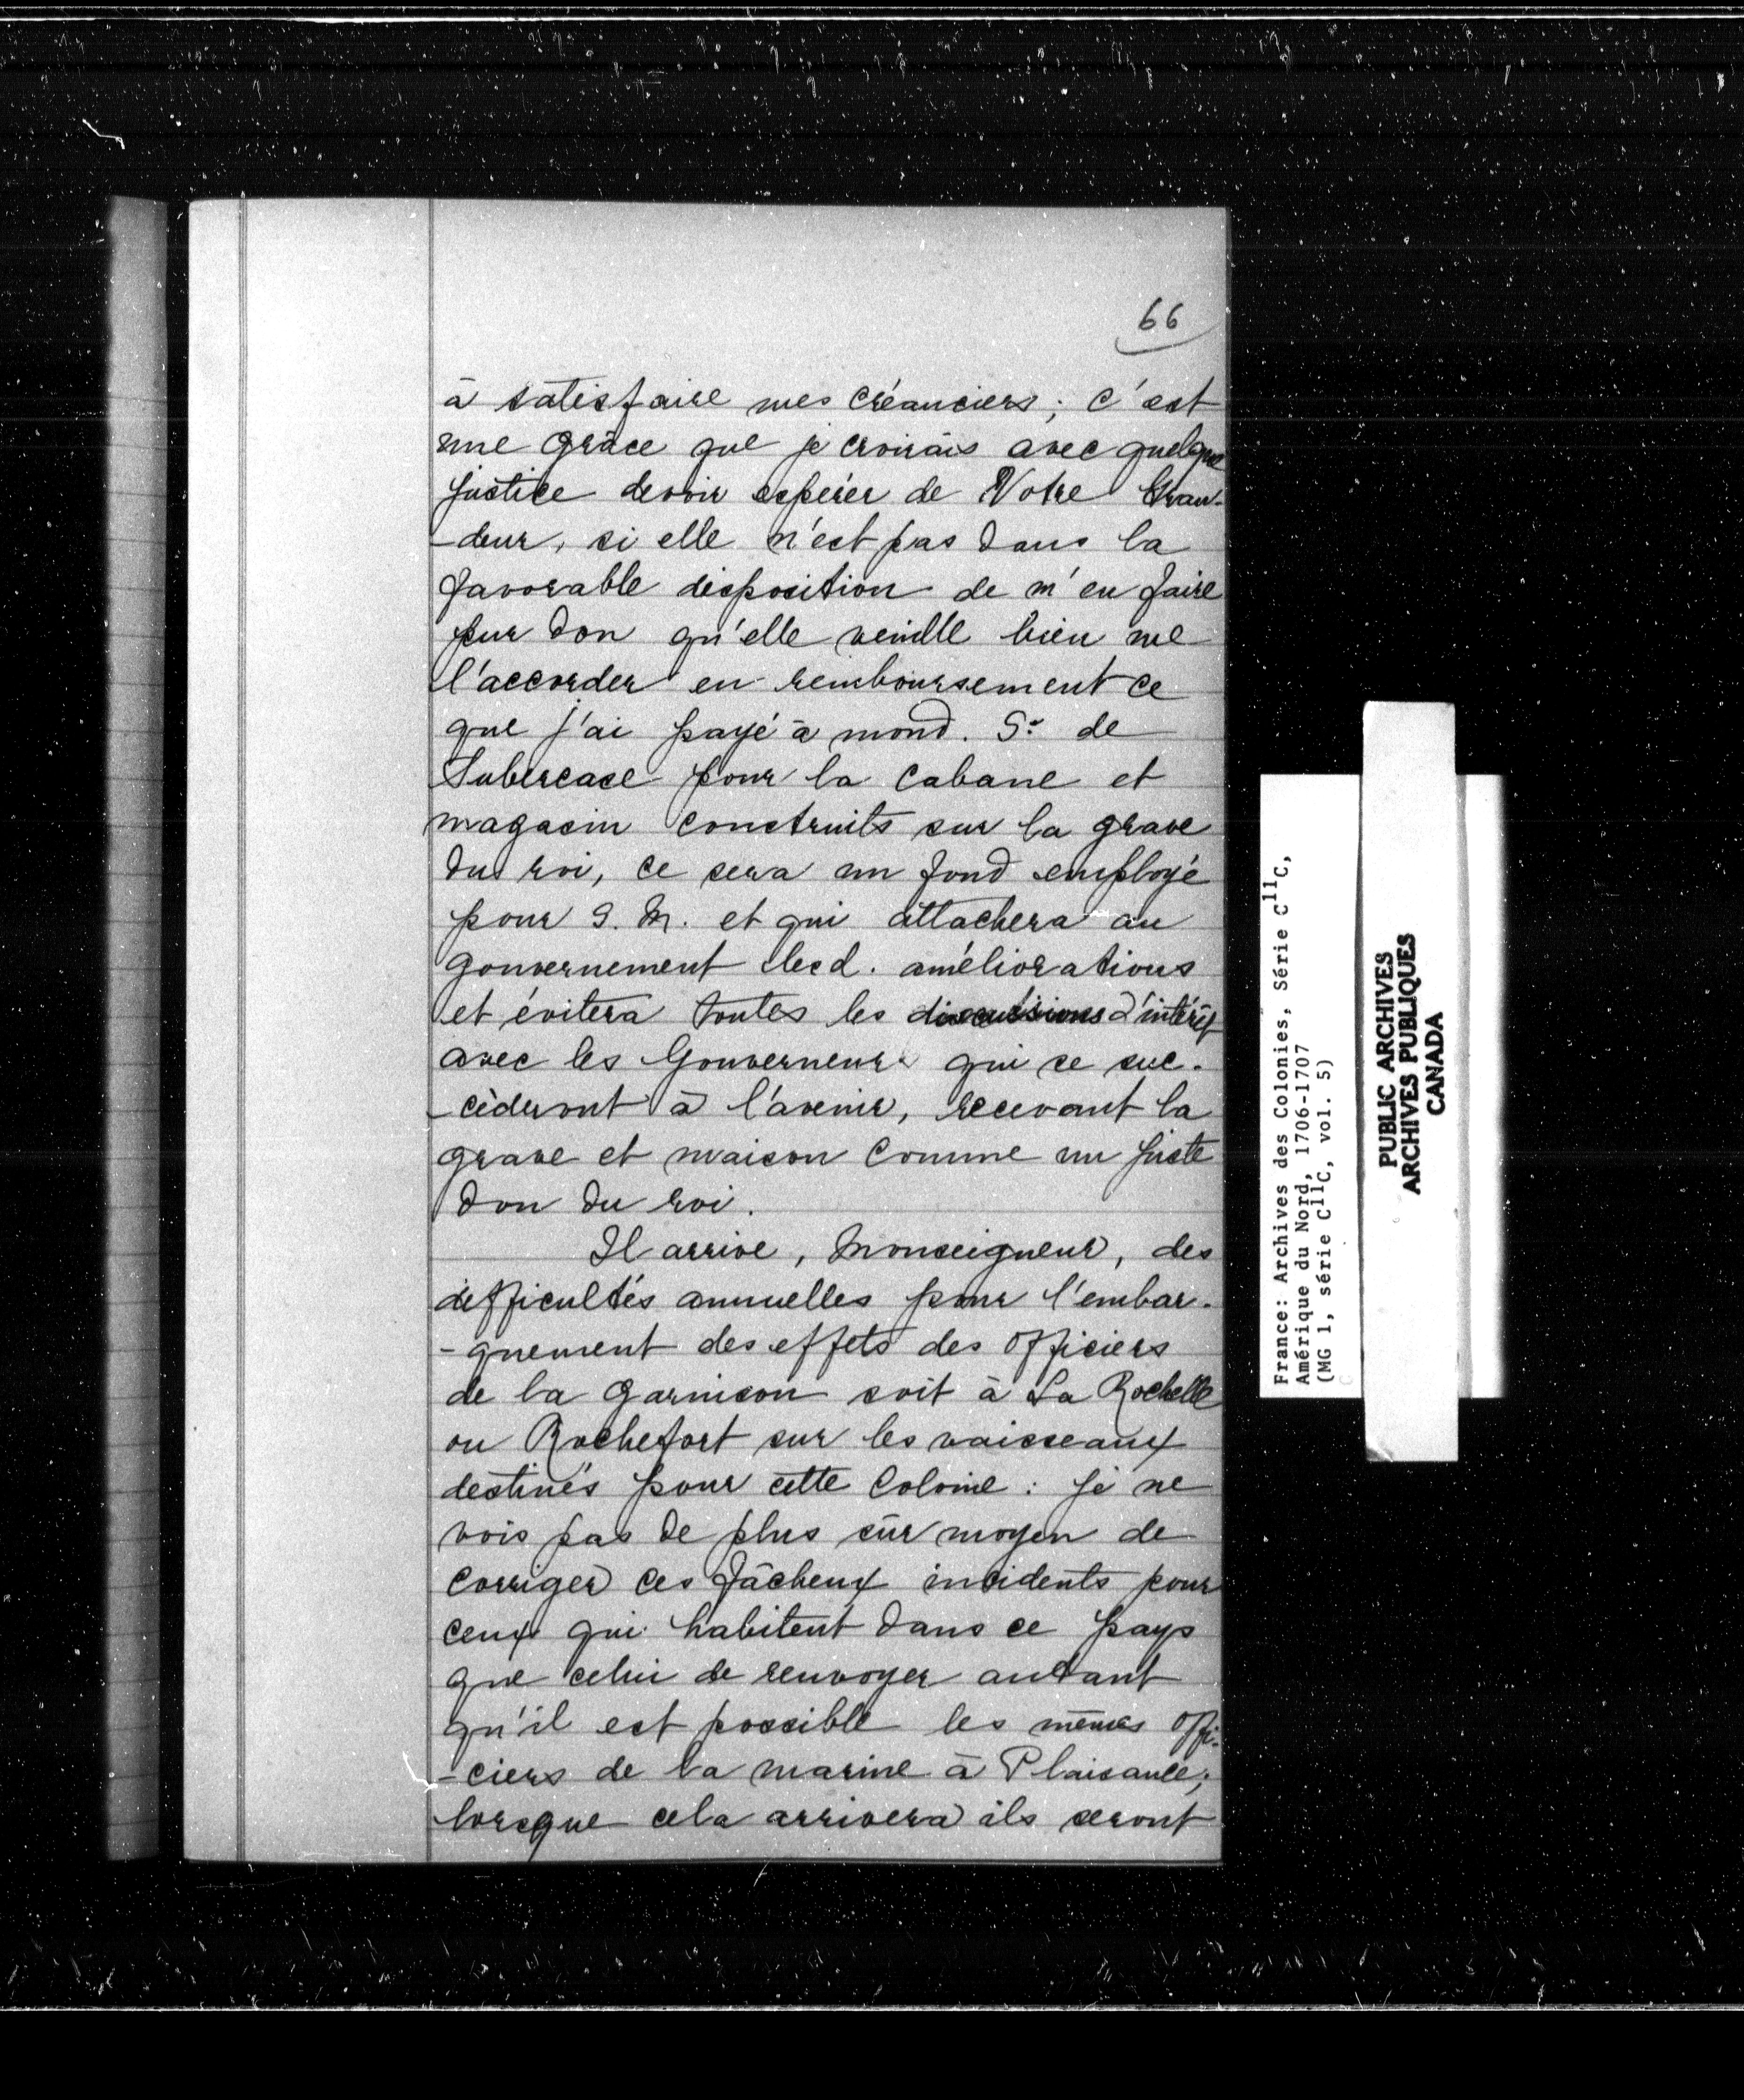 66
à satisfaire mes créanciers ; c'est
une grâce que je croirais avec quelque
justice devoir espérer de Votre Gran-
-deur, si elle n'est pas dans la
favorable disposition de m'en faire
pur don qu'elle veuille bien me
l'accorder en remboursement ce
que j'ai payé à mond. Sr de
Subercase pour la cabane et
magasin construits sur la grave
du roi, ce sera un fond employé
pour S. M. et qui attachera au
gouvernement lesd. améliorations
et évitera toutes les discussions d'intérêt
avec les Gouverneurs qui se suc-
-cèderont à l'avenir, recevant la
grave et maison comme un juste
don du roi.
Il arrive, Monseigneur, des
difficultés annuelles pour l'embar-
-quement des effets des officiers
de la garnison soit à La Rochelle
ou Rochefort sur les vaisseaux
destinés pour cette Colonie : je ne
vois pas de plus sûr moyen de
corriger ces fâcheux incidents pour
ceux qui habitent dans ce pays
que celui de renvoyer autant
qu'il est possible les mêmes offi-
-ciers de la marine à Plaisance ;
lorsque cela arrivera ils seront
France: Archives des Colonies, Série C11C,
Amérique du Nord, 1706-1707
(MG 1, série C11C, vol. 5)
PUBLIC ARCHIVES
ARCHIVES PUBLIQUES
CANADA